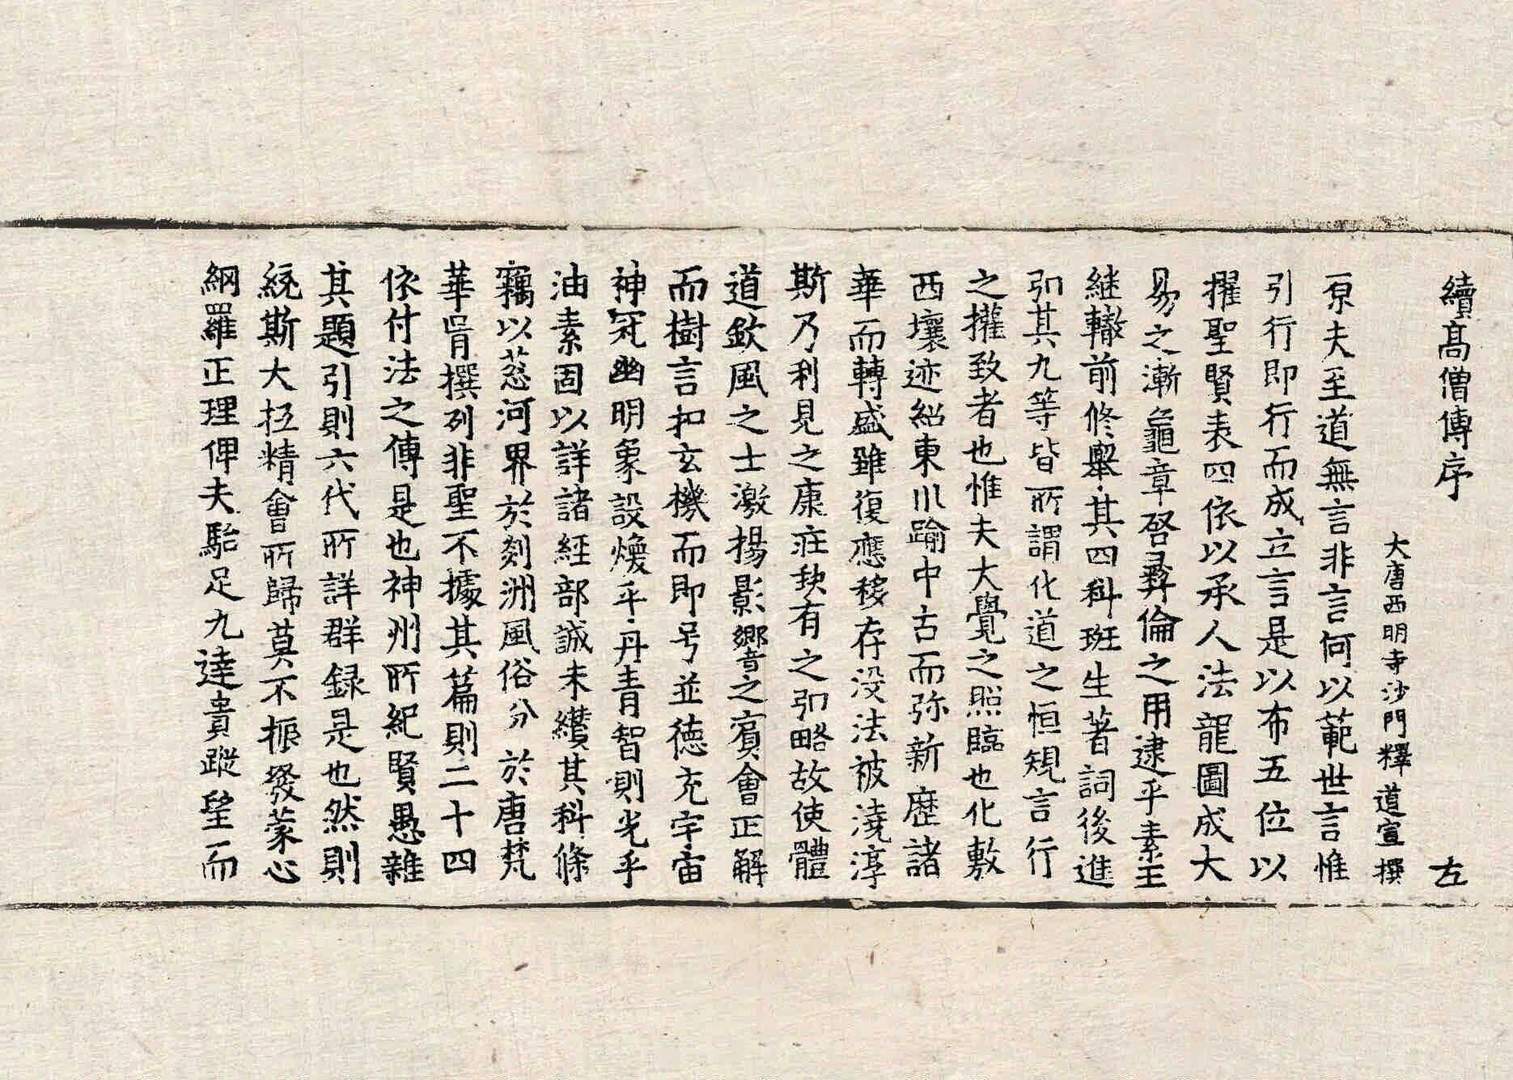 續高僧傳序 左
大唐西明寺沙門釋道宣撰
原夫至道無言非言何以範世言惟
引行即行而成立言是以布五位以
擢聖賢表四依以承人法龍圖成大
易之漸龜章啓彞倫之用逮乎素王
継轍前修舉其四科班生著詞後進
弘其九等皆所謂化道之恒規言行
之權致者也惟夫大覺之照臨也化敷
西壤迹紹東川踰中古而弥新歷諸
華而轉盛雖復應移存没法被澆淳
斯乃利見之康莊缺有之弘略故使體
道欽風之士激揚影響之賓會正解
而樹言扣玄機而即号並德充宇宙
神冠幽明象設煥乎丹青智則光乎
油素固以詳諸經部誠未纘其科條
竊以葱河界於剡洲風俗分於唐梵
華胥撰列非聖不據其篇則二十四
依付法之傳是也神州所紀賢愚雜
其題引則六代所詳群録是也然則
統斯大抵精會所歸莫不振發蒙心
網羅正理俾夫駘足九達貴蹤望而